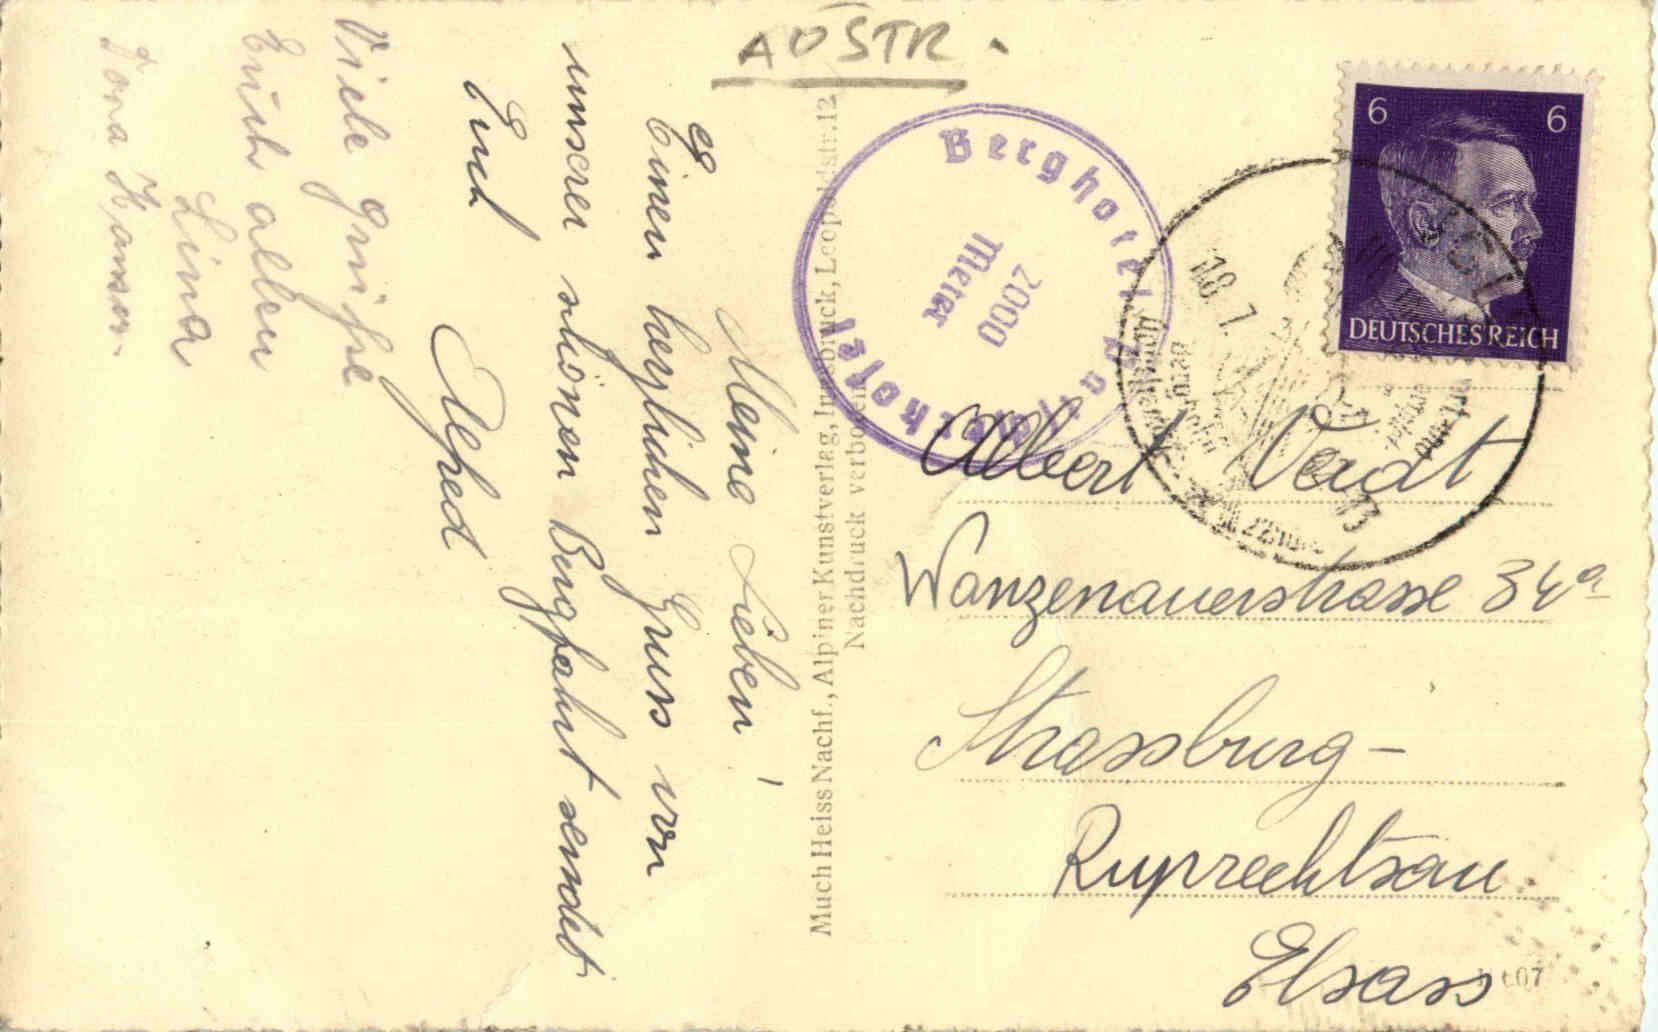 AUSTR.
Meine Lieben!
Einen herzlichen Gruss von
unserer schönen Bergfahrt sendet
Euch
Alfred
Viele Grüße
Euch allen
Lina
Much Heiss Nachf., Alpiner Kunstverlag, Innsbruck, Leopoldstr. 12
Nachdruck verboten
Berghotel
2000
Meter
6 6
DEUTSCHES REICH
18.7.
Albert
Wanzenauerstrasse 34a
Strassburg-
Ruprechtsau
Elsass